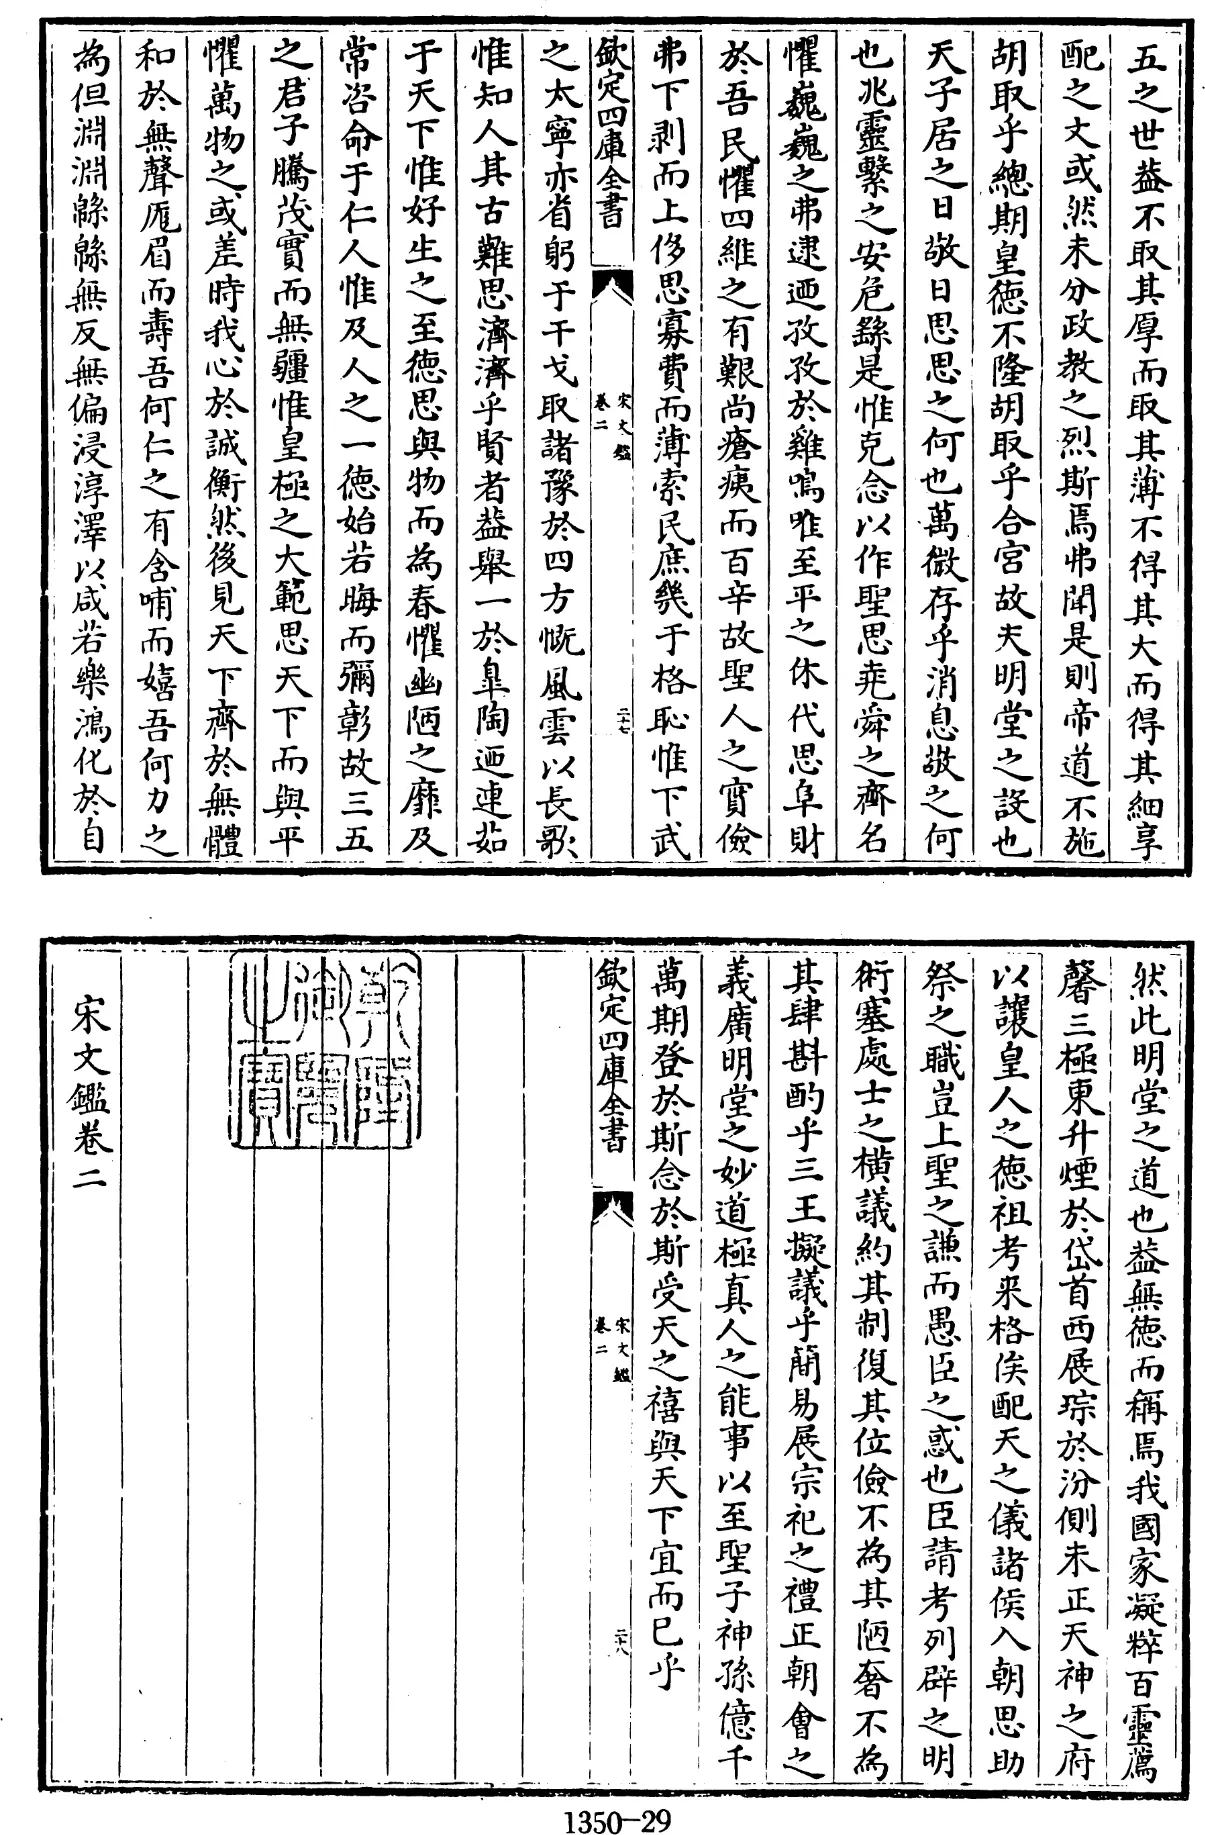 五之世葢不取其厚而取其薄不得其大而得其細享
配之文或然未分政教之烈斯焉弗聞是則帝道不施
胡取乎總期皇徳不隆胡取乎合宮故夫明堂之設也
天子居之日敬日思思之何也萬微存乎消息敬之何
也兆靈繫之安危繇是惟克念以作聖思堯舜之齊名
懼巍巍之弗逮迺孜孜於雞鳴唯至平之休代思阜財
於吾民懼四維之有艱尚瘡痍而百辛故聖人之寳儉
弗下剥而上侈思寡費而薄索民庶幾于格恥惟下武
欽定四庫全書
宋文鑑
卷二
二十七
之太寧亦省躬于干戈取諸豫於四方慨風雲以長歌
惟知人其古難思濟濟乎賢者葢舉一於臯陶迺連茹
于天下惟好生之至徳思與物而為春懼幽陋之靡及
常咨命于仁人惟及人之一徳始若晦而彌彰故三五
之君子騰茂實而無疆惟皇極之大範思天下而與平
懼萬物之或差時我心於誠衡然後見天下齊於無體
和於無聲厖眉而壽吾何仁之有含哺而嬉吾何力之
為但淵淵緜緜無反無偏浸淳澤以咸若樂鴻化於自
然此明堂之道也葢無徳而稱焉我國家凝粹百靈薦
馨三極東升煙於岱首西展琮於汾側未正天神之府
以讓皇人之徳祖考来格俟配天之儀諸侯入朝思助
祭之職豈上聖之謙而愚臣之惑也臣請考列辟之明
術塞處士之横議約其制復其位儉不為其陋奢不為
其肆斟酌乎三王擬議乎簡易展宗祀之禮正朝會之
義廣明堂之妙道極真人之能事以至聖子神孫億千
萬期登於斯念於斯受天之禧與天下宜而已乎
欽定四庫全書
宋文鑑
卷二
二十八
乾隆
御覽
之寳
宋文鑑卷二
1350-29